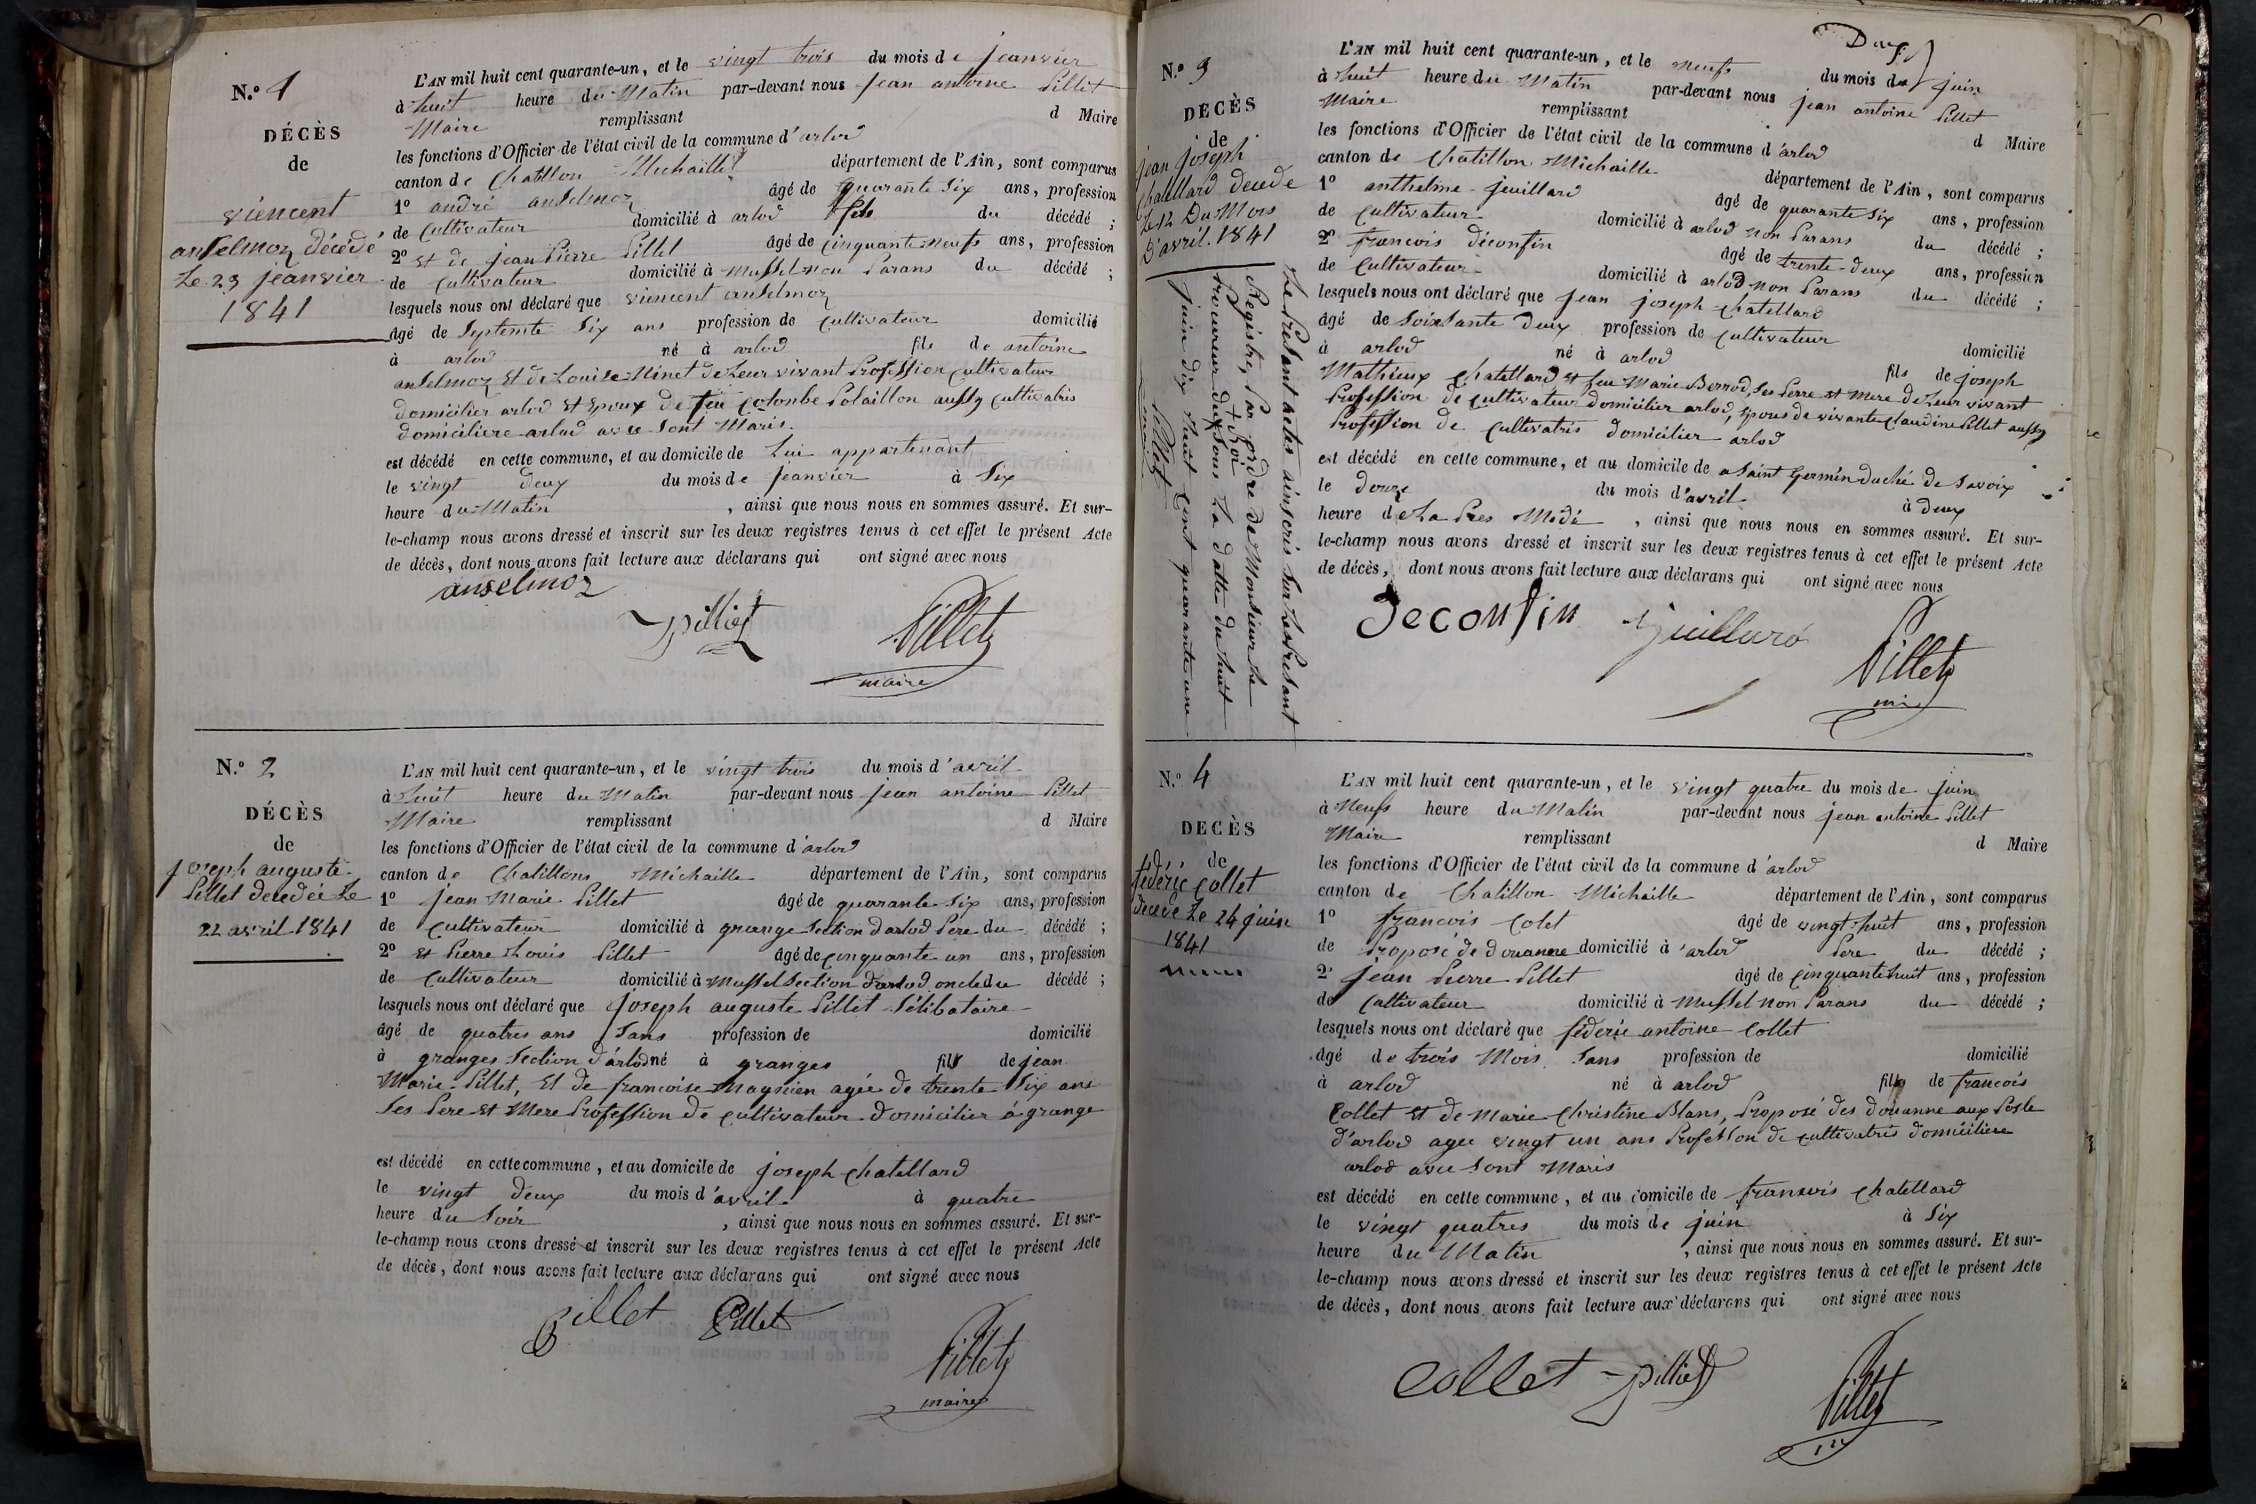 N.° 1
DÉCÈS
de
viencent
anselmoz décédé
Le 23 jeanvier
1841
L'AN mil huit cent quarante-un, et le vingt trois du mois de jeanvier
à huit heure du Matin par-devant nous jean antoine Pillet
Maire remplissant d Maire
les fonctions d'Officier de l'état civil de la commune d'arlod
canton de Chatillon Michaille département de l'Ain, sont comparus
1° andré anselmoz âgé de quarante Six ans, profession
de Cultivateur domicilié à arlod fils du décédé ;
2° et de jean Pierre Pillet âgé de Cinquante neufs ans, profession
de Cultivateur domicilié à Mussel non Parans du décédé ;
lesquels nous ont déclaré que viencent anselmoz
âgé de Septente Six ans profession de Cultivateur domicilié
à arlod né à arlod fils de antoine
anselmoz Et de Louise Ninet de Leur vivant Profession Cultivateur
domicilier arlod Et Epoux de feu Colonbe Poloillon aussy Cultivatris
domiciliere arlod avec Sont Maris.
est décédé en cette commune, et au domicile de Lui appartenant
le vingt deux du mois de jeanvier à Six
heure du Matin , ainsi que nous nous en sommes assuré. Et sur-
le-champ nous avons dressé et inscrit sur les deux registres tenus à cet effet le présent Acte
de décès, dont nous avons fait lecture aux déclarans qui ont signé avec nous
anselmoz
Pilliet
Pillet
maire
N.° 2
DÉCÈS
de
joseph auguste
Pillet decedée Le
22 avril 1841
L'AN mil huit cent quarante-un, et le vingt trois du mois d'avril
à huit heure du Matin par-devant nous jean antoine Pillet
Maire remplissant d Maire
les fonctions d'Officier de l'état civil de la commune d'arlod
canton de Chatillons Michaille département de l'Ain, sont comparus
1° jean Marie Pillet âgé de quarante Six ans, profession
de Cultivateur domicilié à grange Section d'arlod Pere du décédé ;
2° et Pierre Louis Pillet âgé de cinquante un ans, profession
de Cultivateur domicilié à Mussel Section d'arlod oncle du décédé ;
lesquels nous ont déclaré que joseph auguste Pillet Sélibataire
âgé de quatres ans Sans profession de domicilié
à granges Section d'arlod né à granges fils de jean
Marie Pillet, Et de francoise Maynien agée de trente Six ans
Ses Pere et Mere Profession de Cultivateur domicilier à grange
est décédé en cette commune, et au domicile de joseph Chatellard
le vingt deux du mois d'avril à quatre
heure du Soir , ainsi que nous nous en sommes assuré. Et sur-
le-champ nous avons dressé et inscrit sur les deux registres tenus à cet effet le présent Acte
de décès, dont nous avons fait lecture aux déclarans qui ont signé avec nous
Pillet Pillet
Pillet
maire
N.° 3
DÉCÈS
de
jean joseph
Chatellard décédé
Le 12 Du Mois
D'avril 1841
Le Présant actes ainscris Sur Les Présant
Registre, Par ordre de Monsieur Le
Procureur du Roi
Sous La datte du huit
juin dix huit Cent quarante une
Pillet
maire
L'AN mil huit cent quarante-un, et le neufs du mois de juin
à huit heure du Matin par-devant nous jean antoine Pillet
Maire remplissant d Maire
les fonctions d'Officier de l'état civil de la commune d'arlod
canton de Chatillon Michaille département de l'Ain, sont comparus
1° anthelme juillard âgé de quarante Six ans, profession
de Cultivateur domicilié à arlod non Parans du décédé ;
2° francois déconfin âgé de trente deux ans, profession
de Cultivateur domicilié à arlod non Parans du décédé ;
lesquels nous ont déclaré que jean joseph Chatellard
âgé de Soixsante deux profession de Cultivateur domicilié
à arlod né à arlod fils de joseph
Mathieux Chatellard et feu Marie Berrod, Ses Perre et Mere de Leur vivant
Profession de Cultivateur domicilier arlod, Epous de vivante Claudine Pillet aussy
Profession de Cultivatris domicilier arlod
est décédé en cette commune, et au domicile de a Saint Germin duché de Savoix
le douze du mois d'avril à deux
heure de La Pres Midi , ainsi que nous nous en sommes assuré. Et sur-
le-champ nous avons dressé et inscrit sur les deux registres tenus à cet effet le présent Acte
de décès, dont nous avons fait lecture aux déclarans qui ont signé avec nous
Deconfin juillard
Pillet
N.° 4
DÉCÈS
de
féderic Collet
décédé Le 24 juin
1841
L'AN mil huit cent quarante-un, et le vingt quatre du mois de juin
à Neufs heure du Matin par-devant nous jean antoine Pillet
Maire remplissant d Maire
les fonctions d'Officier de l'état civil de la commune d'arlod
canton de Chatillon Michaille département de l'Ain, sont comparus
1° francois Colet âgé de vingt huit ans, profession
de Proposé de douanne domicilié à arlod Pere du décédé ;
2° jean Pierre Pillet âgé de Cinquante huit ans, profession
de Cultivateur domicilié à Mussel non Parans du décédé ;
lesquels nous ont déclaré que féderic antoine Collet
âgé de trois Mois Sans profession de domicilié
à arlod né à arlod fils de francois
Collet et de Marie Christine Blans, Proposé des douanne aux Poste
d'arlod agee vingt un ans Profession de Cultivatris domiciliere
arlod avec Sont Maris
est décédé en cette commune, et au domicile de fransois Chatellard
le vingt quatres du mois de juin à Six
heure du Matin , ainsi que nous nous en sommes assuré. Et sur-
le-champ nous avons dressé et inscrit sur les deux registres tenus à cet effet le présent Acte
de décès, dont nous avons fait lecture aux déclarans qui ont signé avec nous
Collet Pilliet
Pillet